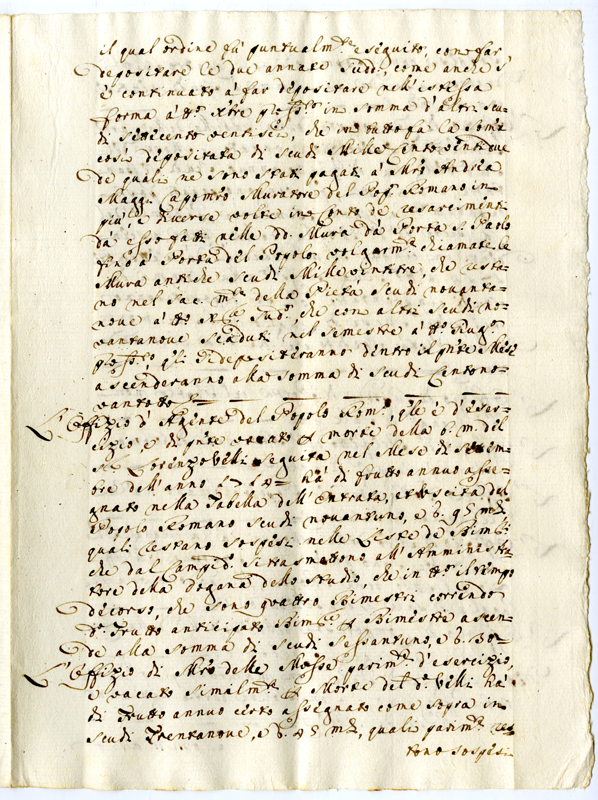 il qual ordine fù puntualm.te eseguito, con far
depositare le due annate sudd.e, come anche s'
è continuato à far depositare nell'istessa
forma à t.to in somma d'altri scu=
di settecento ventisei, che in tutto fà la som̃a
così depositata di scudi Mille cento ventidue
de quali ne sono stati pagati à M.ro Andrea
Maggi Capom.ro Muratore del Pop.o Romano in
più, e diverse volte in conto de resarcimenti
da esso fatti nelle d.e Mura da Porta S. Paolo
fino à Porta del Popolo volgarm.te chiamate le
Mura antiche scudi Mille ventitre, che resta=
no nel Sac. M.te della Pietà scudi novanta=
nove à t.to che con altri scudi no=
vantanove scaduti nel semestre à t.to Giug.o
gli si depositeranno dentro il pñte Mese
ascenderanno alla somma di scudi Centono=
vantotto
L'Offizio d'Agente del Popolo Rom.o, q.le è d'eser=
cizio, e di pñte vacato p morte della b. m. del
S.r Lorenzo Villi seguita nel Mese di Settem=
bre dell'anno hà di frutto annuo asse=
gnato nella Tabella dell'Entrata, et Uscita del
Popolo Romano scudi novantuno, e b. 95 m.ta
quali restano sospesi nelle Liste de Bim.li
che dal Campid.o si trasmettono all'Amministra=
tore della Dogana dello Studio, che in t.to il tempo
decorso, che sono quattro Bimestri correndo
d.o frutto anticipato Bim.e p Bimestre ascen=
de alla somma di scudi sessantuno, e b. 30=
L'Offizio di M.ro delle Mosse parim.te d'esercizio,
e vacato similm.te p Morte del d.o Villi hà
di frutto annuo certo assegnato come sopra in
scudi Trentanove, e b. 45 m.ta, quali parim.te res
tono sospesi